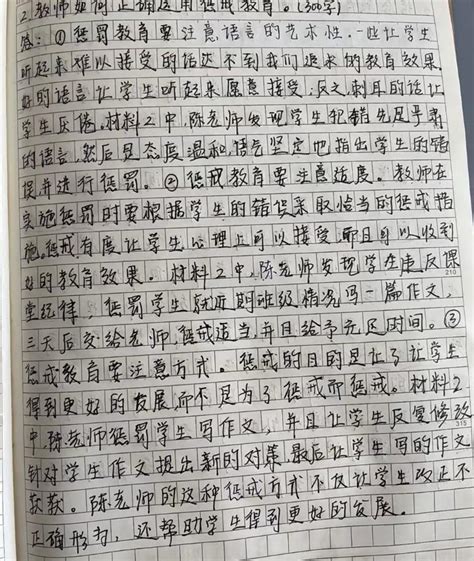 2. 教师如何正确运用惩戒教育。(300字)
答：①惩罚教育要注意语言的艺术性。一些让学生
听起来难以接受的话达不到我们追求的教育效果。
好的语言让学生听起来愿意接受；反之,刺耳的话让
学生反倦。材料2中,陈老师发现学生犯错先是严肃
的语言,然后是态度温和,语气坚定地指出学生的错
误并进行惩罚。②惩戒教育要注意适度。教师在
实施惩罚时要根据学生的错误采取恰当的惩戒措
施,惩戒有度让学生心理上可以接受,而且可以收到
好的教育效果。材料2中,陈老师发现学生违反课
堂纪律,惩罚学生就近期班级情况写一篇作文,
210
三天后交给老师,惩戒适当,并且给予充足时间。③
惩戒教育要注意方式。惩戒的目的是让了让学生
得到更好的发展,而不是为了惩戒而惩戒。材料2
中,陈老师惩罚学生写作文,并且让学生反复修改
315
针对学生作文提出新的对策,最后让学生写的作文
获获。陈老师的这种惩戒方式不仅让学生改正不
正确形为,还帮助学生得到更好的发展。